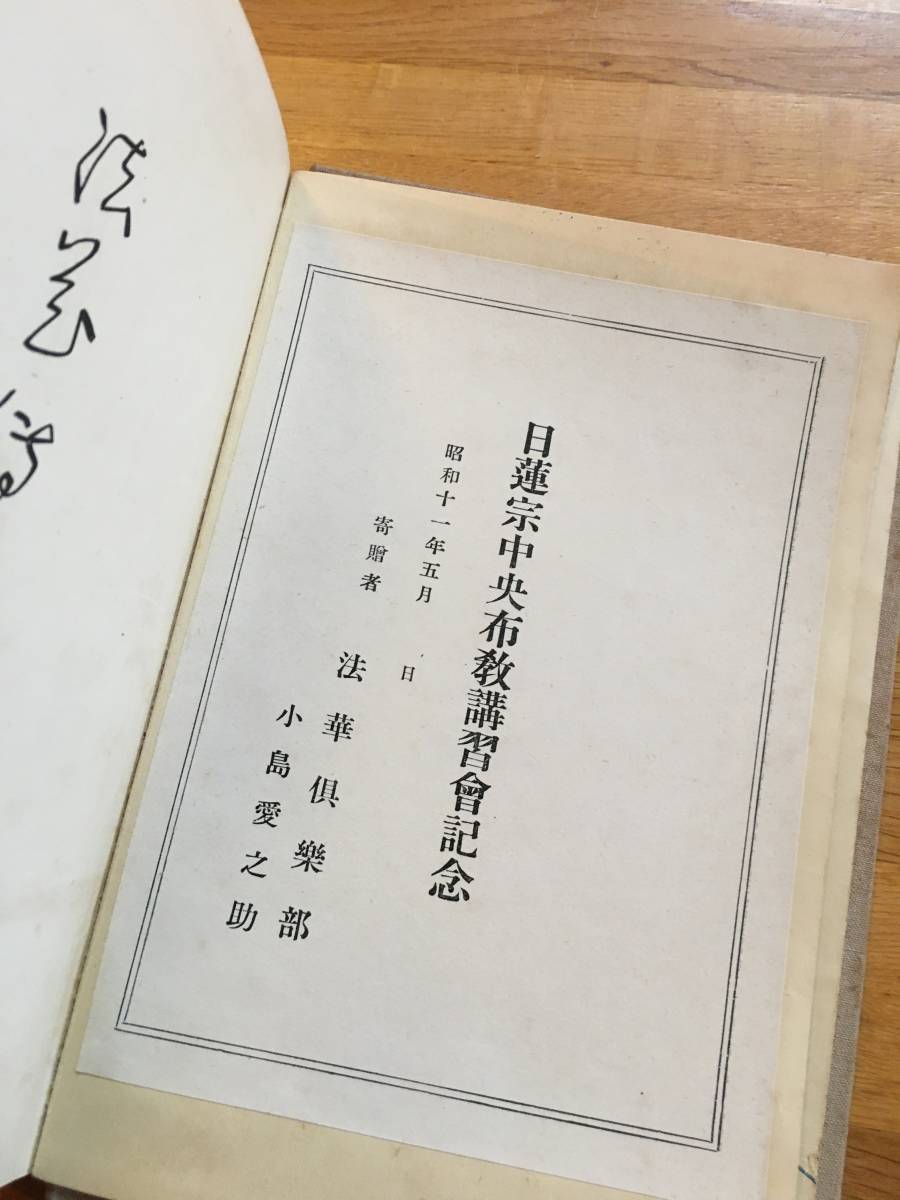 日蓮宗中央布教講習會記念
昭和十一年五月　日
寄贈者
法華倶樂部
小島愛之助
法華